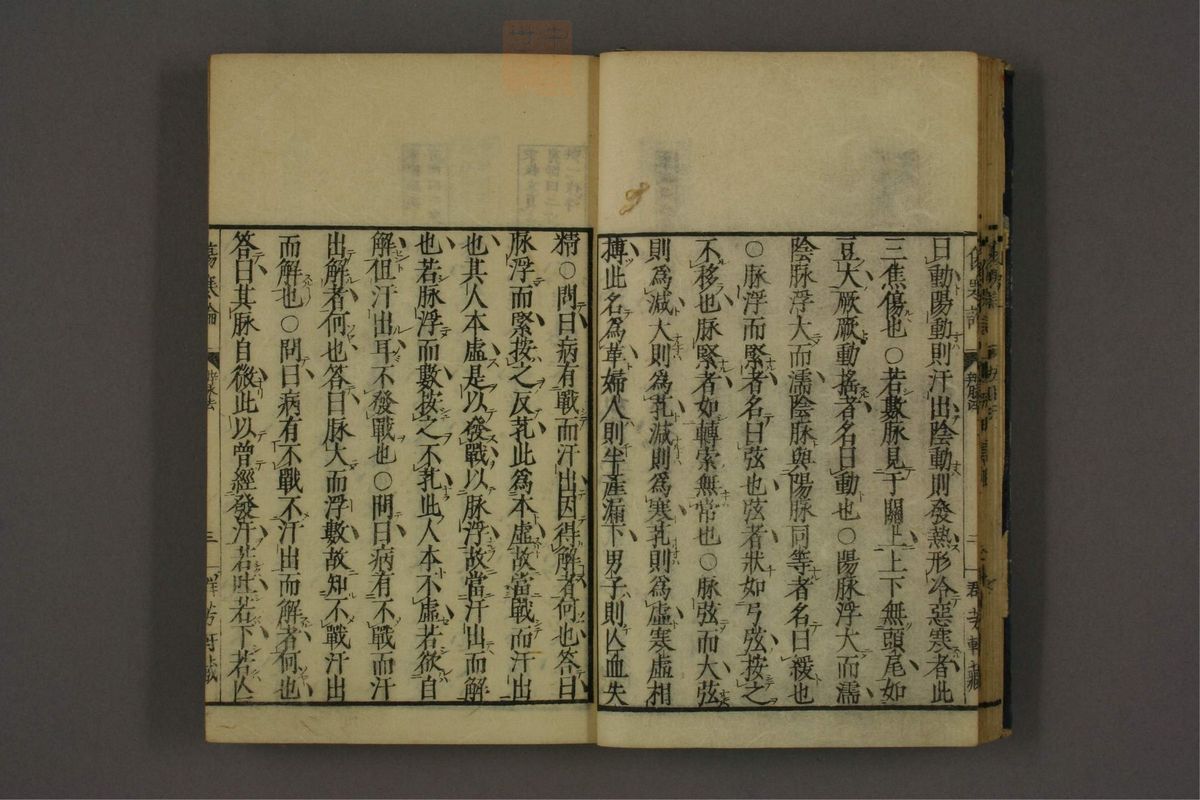 曰動陽動則汗出陰動則發熱形冷惡寒者此
三焦傷也○若數脉見于關上上下無頭尾如
豆大厥厥動搖者名曰動也○陽脉浮大而濡
陰脉浮大而濡陰脉與陽脉同等者名曰緩也
○脉浮而緊者名曰弦也弦者狀如弓弦按之
不移也脉緊者如轉索無常也○脉弦而大弦
則為減大則為芤減則為寒芤則為虛寒虛相
搏此名為革婦人則半產漏下男子則亾血失
精○問曰病有戰而汗出因得解者何也答曰
脉浮而緊按之反芤此爲本虛故當戰而汗出
也其人本虛是以發戰以脉浮故當汗出而解
也若脉浮而數按之不芤此人本不虛若欲自
解但汗出耳不發戰也○問曰病有不戰而汗
出解者何也答曰脉大而浮數故知不戰汗出
而解也○問曰病有不戰不汗出而解者何也
答曰其脉自微此以曾經發汗若吐若下若亾
傷寒論 辨脉法 三